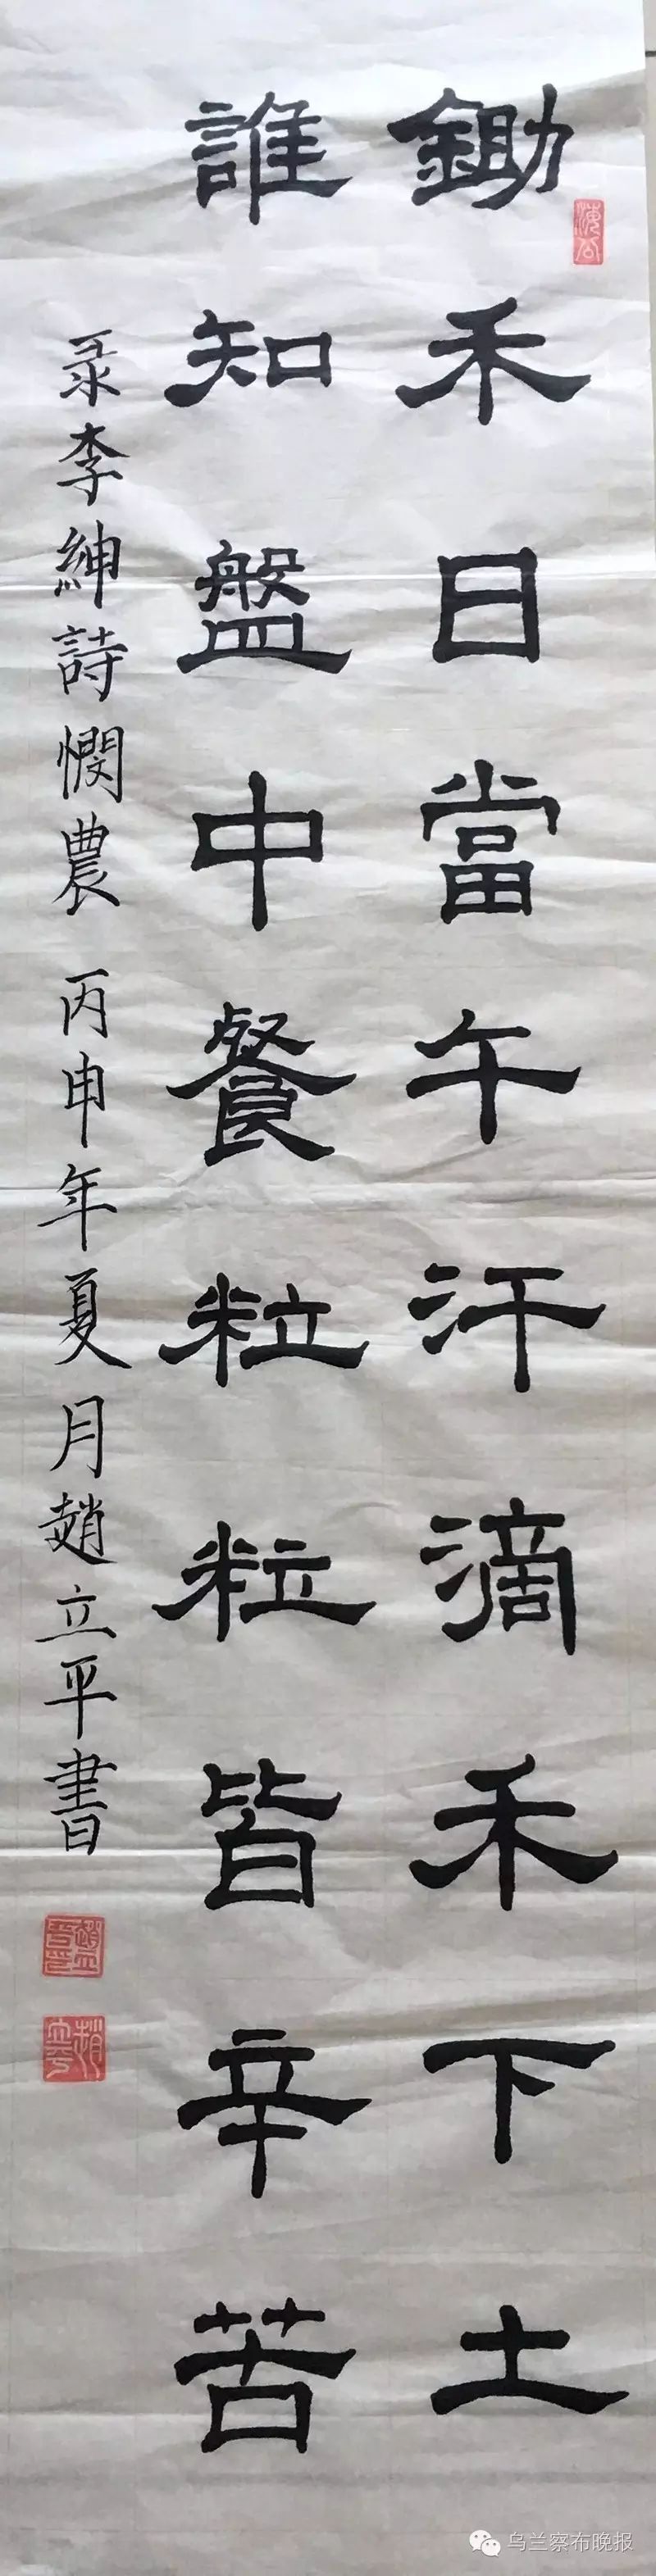 鋤禾日當午汗滴禾下土
誰知盤中餐粒粒皆辛苦
录李紳詩憫農 丙申年夏月趙立平書
乌兰察布晚报